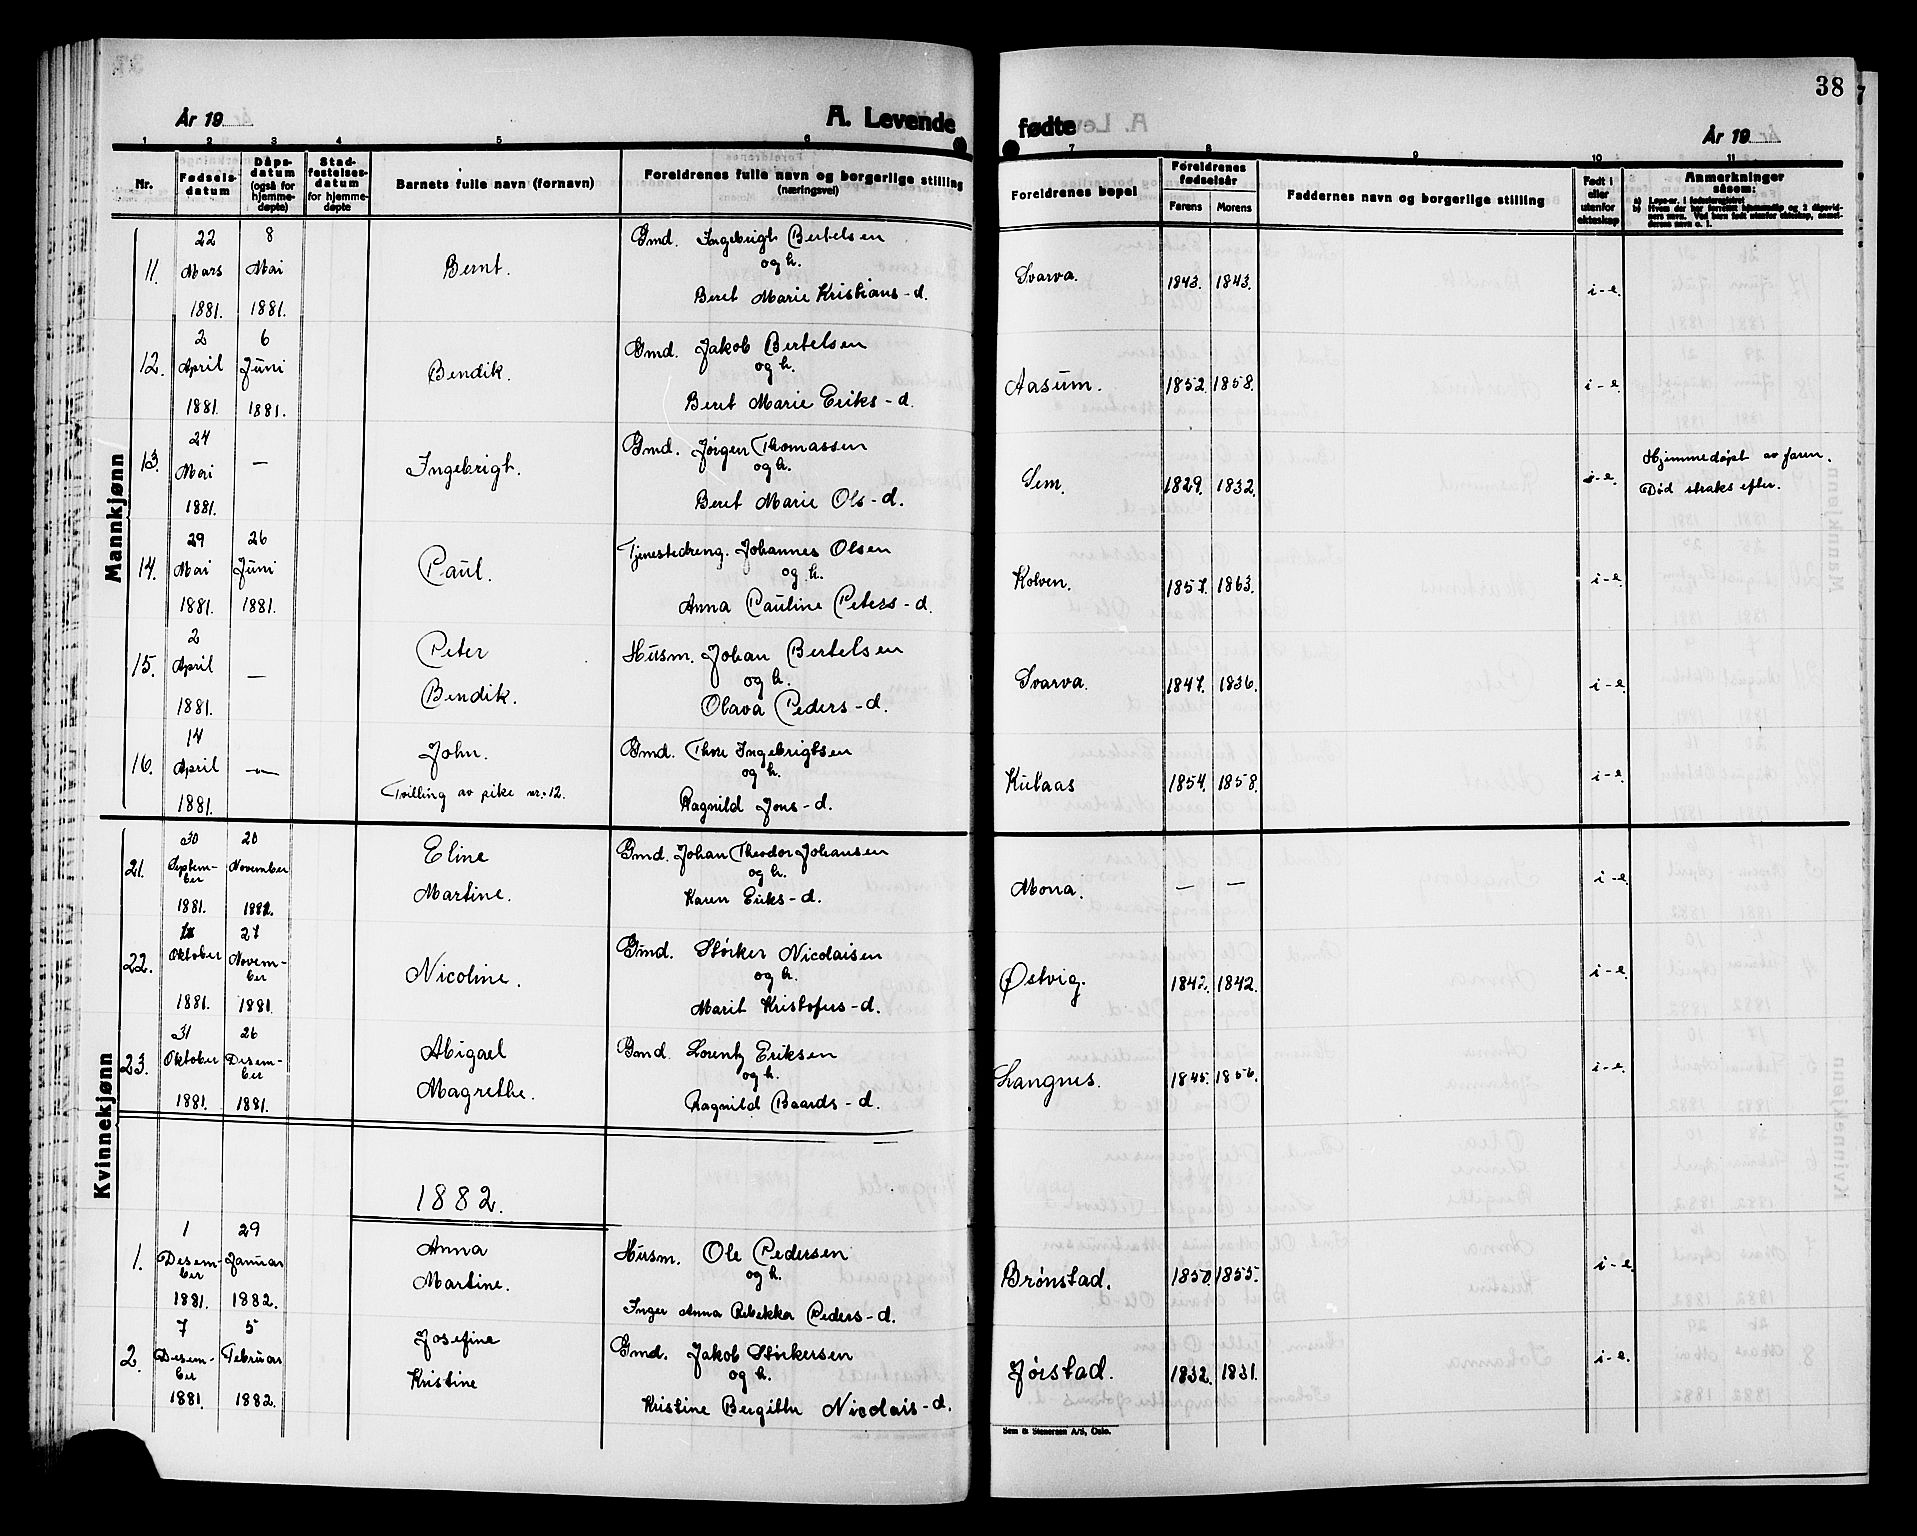 38
År 19
A. Levende fødte
År 19
1 2 3 4 5 6 7 8 9 10 11
Nr. Fødselsdatum Dåpsdatum (også for hjemmedøpte) Stadfestelsesdatum for hjemmedøpte Barnets fulle navn (fornavn) Foreldrenes fulle navn og borgerlige stilling (næringsvei) Foreldrenes bopel Foreldrenes fødselsår Farens Morens Faddernes navn og borgerlige stilling Født i eller utenfor ekteskap Anmerkninger såsom:
Mannkjønn
22 8 Gmd. Ingebrigt Bertelsen
11. Mars Mai Bernt. og h. Svarva. 1843. 1843. i-e.
1881. 1881. Beret Marie Kristians-d.
2 6 Gmd. Jakob Bertelsen
12. April Juni Bendik. og h. Aasum. 1852. 1858. i-e.
1881. 1881. Beret Marie Eriks-d.
24 Gmd. Jørgen Thomassen Hjemmedøpt av faren.
13. Mai — Ingebrigt. og h. Sem. 1829. 1832. i-e. Død straks efter.
1881. Beret Marie Ols-d.
29 26 Tjenestedreng. Johannes Olsen
14. Mai Juni Paul. og h. Kolven. 1857. 1863. i-e.
1881. 1881. Anna Pauline Peters-d.
2 Peter Husm. Johan Bertelsen
15. April — og h. Svarva. 1847. 1836. i-e.
1881. Bendik. Olava Peders-d.
14 John. Gmd. Thore Ingebrigtsen
16. April — og h. Kulaas 1854. 1858. i-e.
1881. Tvilling av pike nr. 12. Ragnild Jons-d.
Kvinnekjønn
30 20 Eline Gmd. Johan Theodor Johansen
21. September November og h. Mona. — — i-e.
1881. Martine. Karen Eriks-d.
27 Gmd. Størker Nicolaisen
22. Oktober November Nicoline. og h. Østvig. 1842. 1842. i-e.
1881. 1881. Marit Kristofers-d.
31 26 Abigael Gmd. Lorentz Eriksen
23. Oktober Desember og h. Langnes. 1845. 1856. i-e.
1881. 1881. Magrethe. Ragnild Baards-d.
1882.
1 29 Anna Husm. Ole Pedersen
1. Desember Januar Martine. og h. Brønstad. 1850. 1855. i-e.
1881. 1882. Inger Anna Rebekka Peders-d.
7 5 Josefine Gmd. Jakob Størkersen
2. Desember Februar Kristine og h. Jørstad. 1832. 1831. i-e.
1881. 1882. Kristine Bergitte Nicolais-d.
Sem & Stenersen A/S, Oslo.